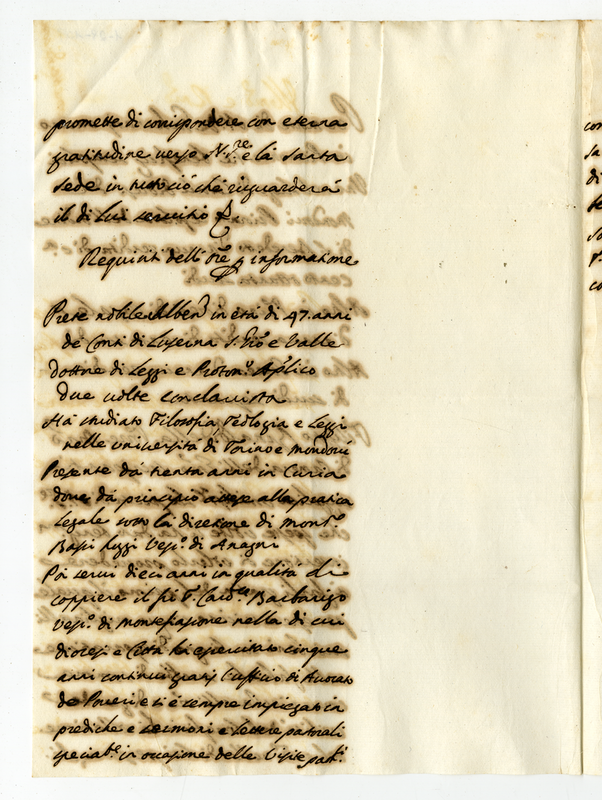 promette di corrispondere con eterna
gratitudine verso N. S.re e la Santa
Sede in tutto ciò che riguarderà
il di lui servitio
Requisiti dell' Ore p informatione
Prete nobile in età di 47. anni
de Conti di Luserna S. Gio: e Valle
dottore di Leggi e Proton.o Ap.lico
due volte conclavista
Hà studiato Filosofia, Teologia e Leggi
nelle università di Torino e Mondovi
Presente dà trenta anni in Curia
dove dà principio attese alla pratica
legale sotto la diretione di Mons.re
Bassi Vesc.o di Anagni
Poi servi dieci anni in qualità di
coppiere il fù Card.le Barbarigo
Vesc.o di Montefiascone nella di cui
diocesi e Città hà esercitato cinque
anni continui gratis l'ufficio di Avocato
de Poveri e si è sempre impiegato in
prediche e sermoni e lettere pastorali
special.te in occasione delle Visite past.li
con
sa
di
so
co